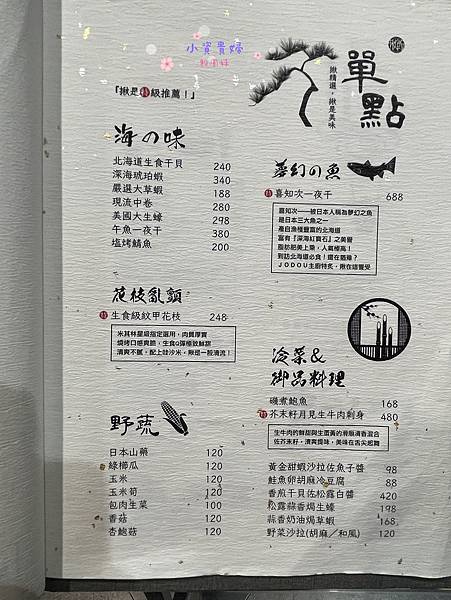 小資貴婦
敗國誌
單點
揪精選，揪是美味
「揪是特級推薦！」
海の味
北海道生食干貝 240
深海琥珀蝦 340
嚴選大草蝦 188
現流中卷 280
美國大生蠔 298
午魚一夜干 380
塩烤鯖魚 200
夢幻の魚
特 喜知次一夜干 688
喜知次——被日本人稱為夢幻之魚
是日本三大魚之一
產自漁種豐富的北海道
富有『深海紅寶石』之美譽
脂肪肥美上乘，人氣極高！
到訪北海道必食！還在猶豫？
JODOU主廚特炙，揪在這饗受
花枝亂顫
特 生食級紋甲花枝 248
米其林星級指定選用，肉質厚實
燒烤口感爽脆，生食Q彈極致鮮甜
清爽不膩，配上哇沙米，揪是一股清流！
冷菜&
御品料理
磯煮鮑魚 168
特 芥末籽月見生牛肉刺身 480
生牛肉的鮮甜與生蛋黃的滑順濃香混合
佐芥末籽，清爽提味，美味在舌尖起舞
黃金甜蝦沙拉佐魚子醬 98
鮭魚卵胡麻冷豆腐 88
香煎干貝佐松露白醬 420
松露蒜香焗生蠔 198
蒜香奶油焗草蝦 168
野菜沙拉(胡麻／和風) 120
野蔬
日本山藥 120
綠櫛瓜 120
玉米 120
玉米筍 120
包肉生菜 100
香菇 120
杏鮑菇 120